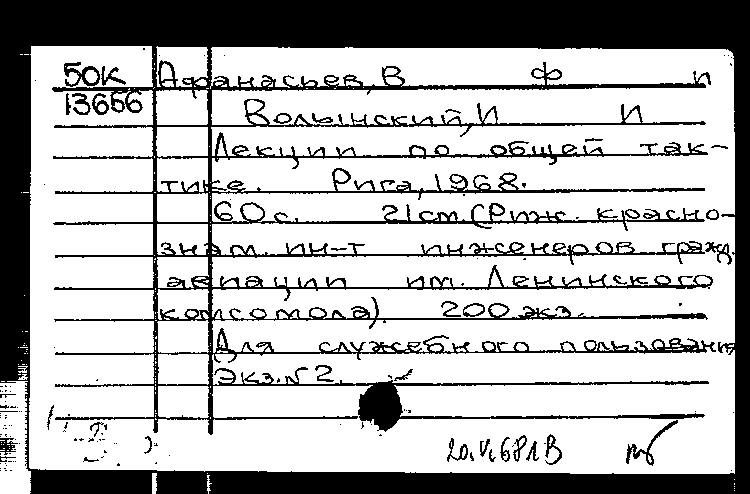 50К Афанасьев, В Ф и
13656 Волынский, И И
Лекции по общей так-
тике. Рига, 1968.
60 с. 21 см (Риж. красно-
знам. ин-т инженеров гражд.
авиации им. Ленинского
комсомола). 200 экз.
Для служебного пользования
Экз. № 2.
20.V.68